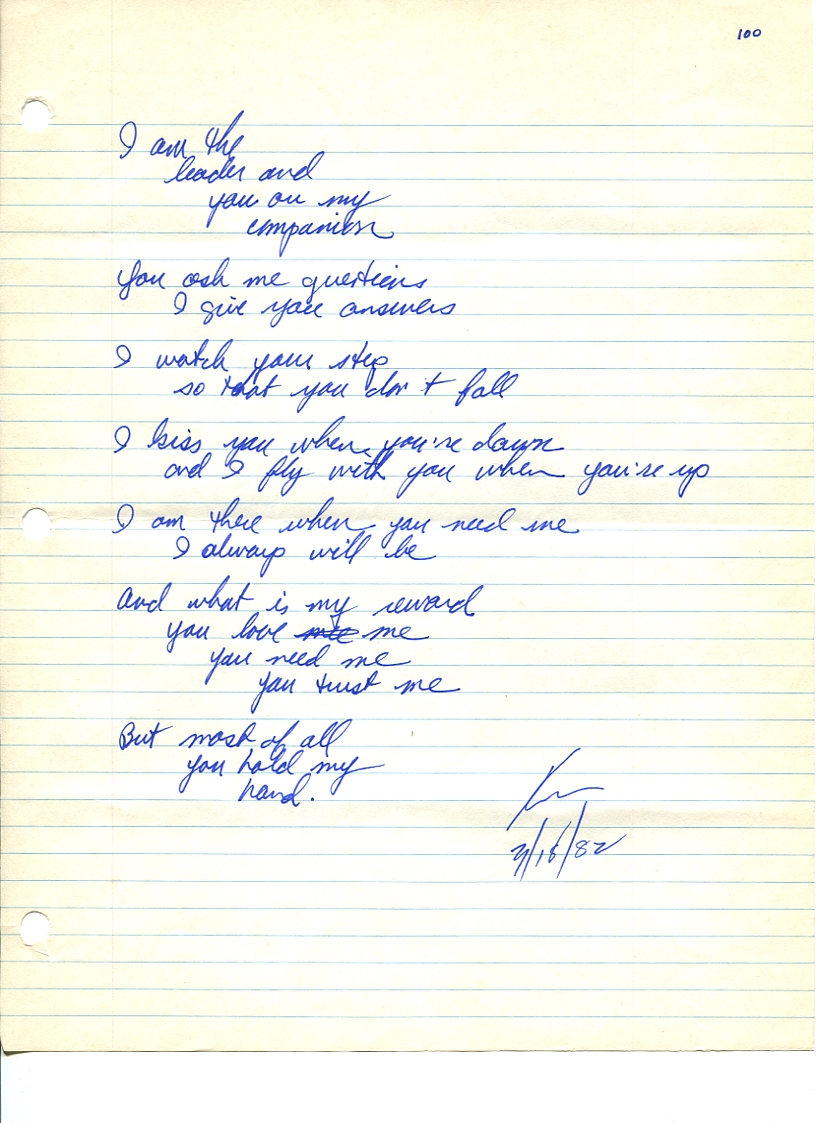 100
I am the
leader and
you are my
companion
You ask me questions
I give you answers
I watch your step
so that you don't fall
I kiss you when you're down
and I fly with you when you're up
I am there when you need me
I always will be
And what is my reward
you love me
you need me
you trust me
But most of all
you hold my
hand.